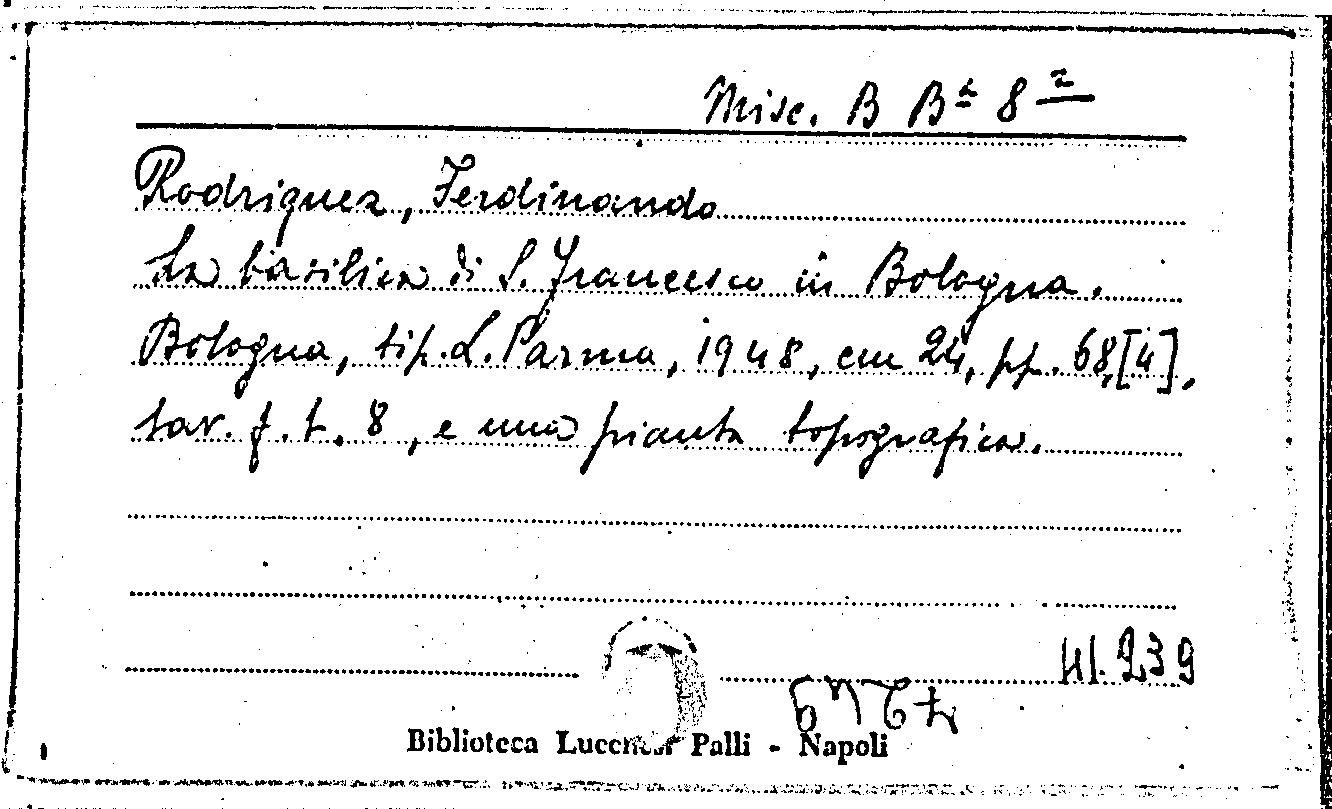 Misc. B Bª 8 ²
Rodriquez, Ferdinando
La basilica di S. Francesco in Bologna.
Bologna, tip. L. Parma, 1948, cm 24, pp. 68, [4],
tav. f. t. 8, e una pianta topografica.
41.239
Biblioteca Lucchesi Palli - Napoli